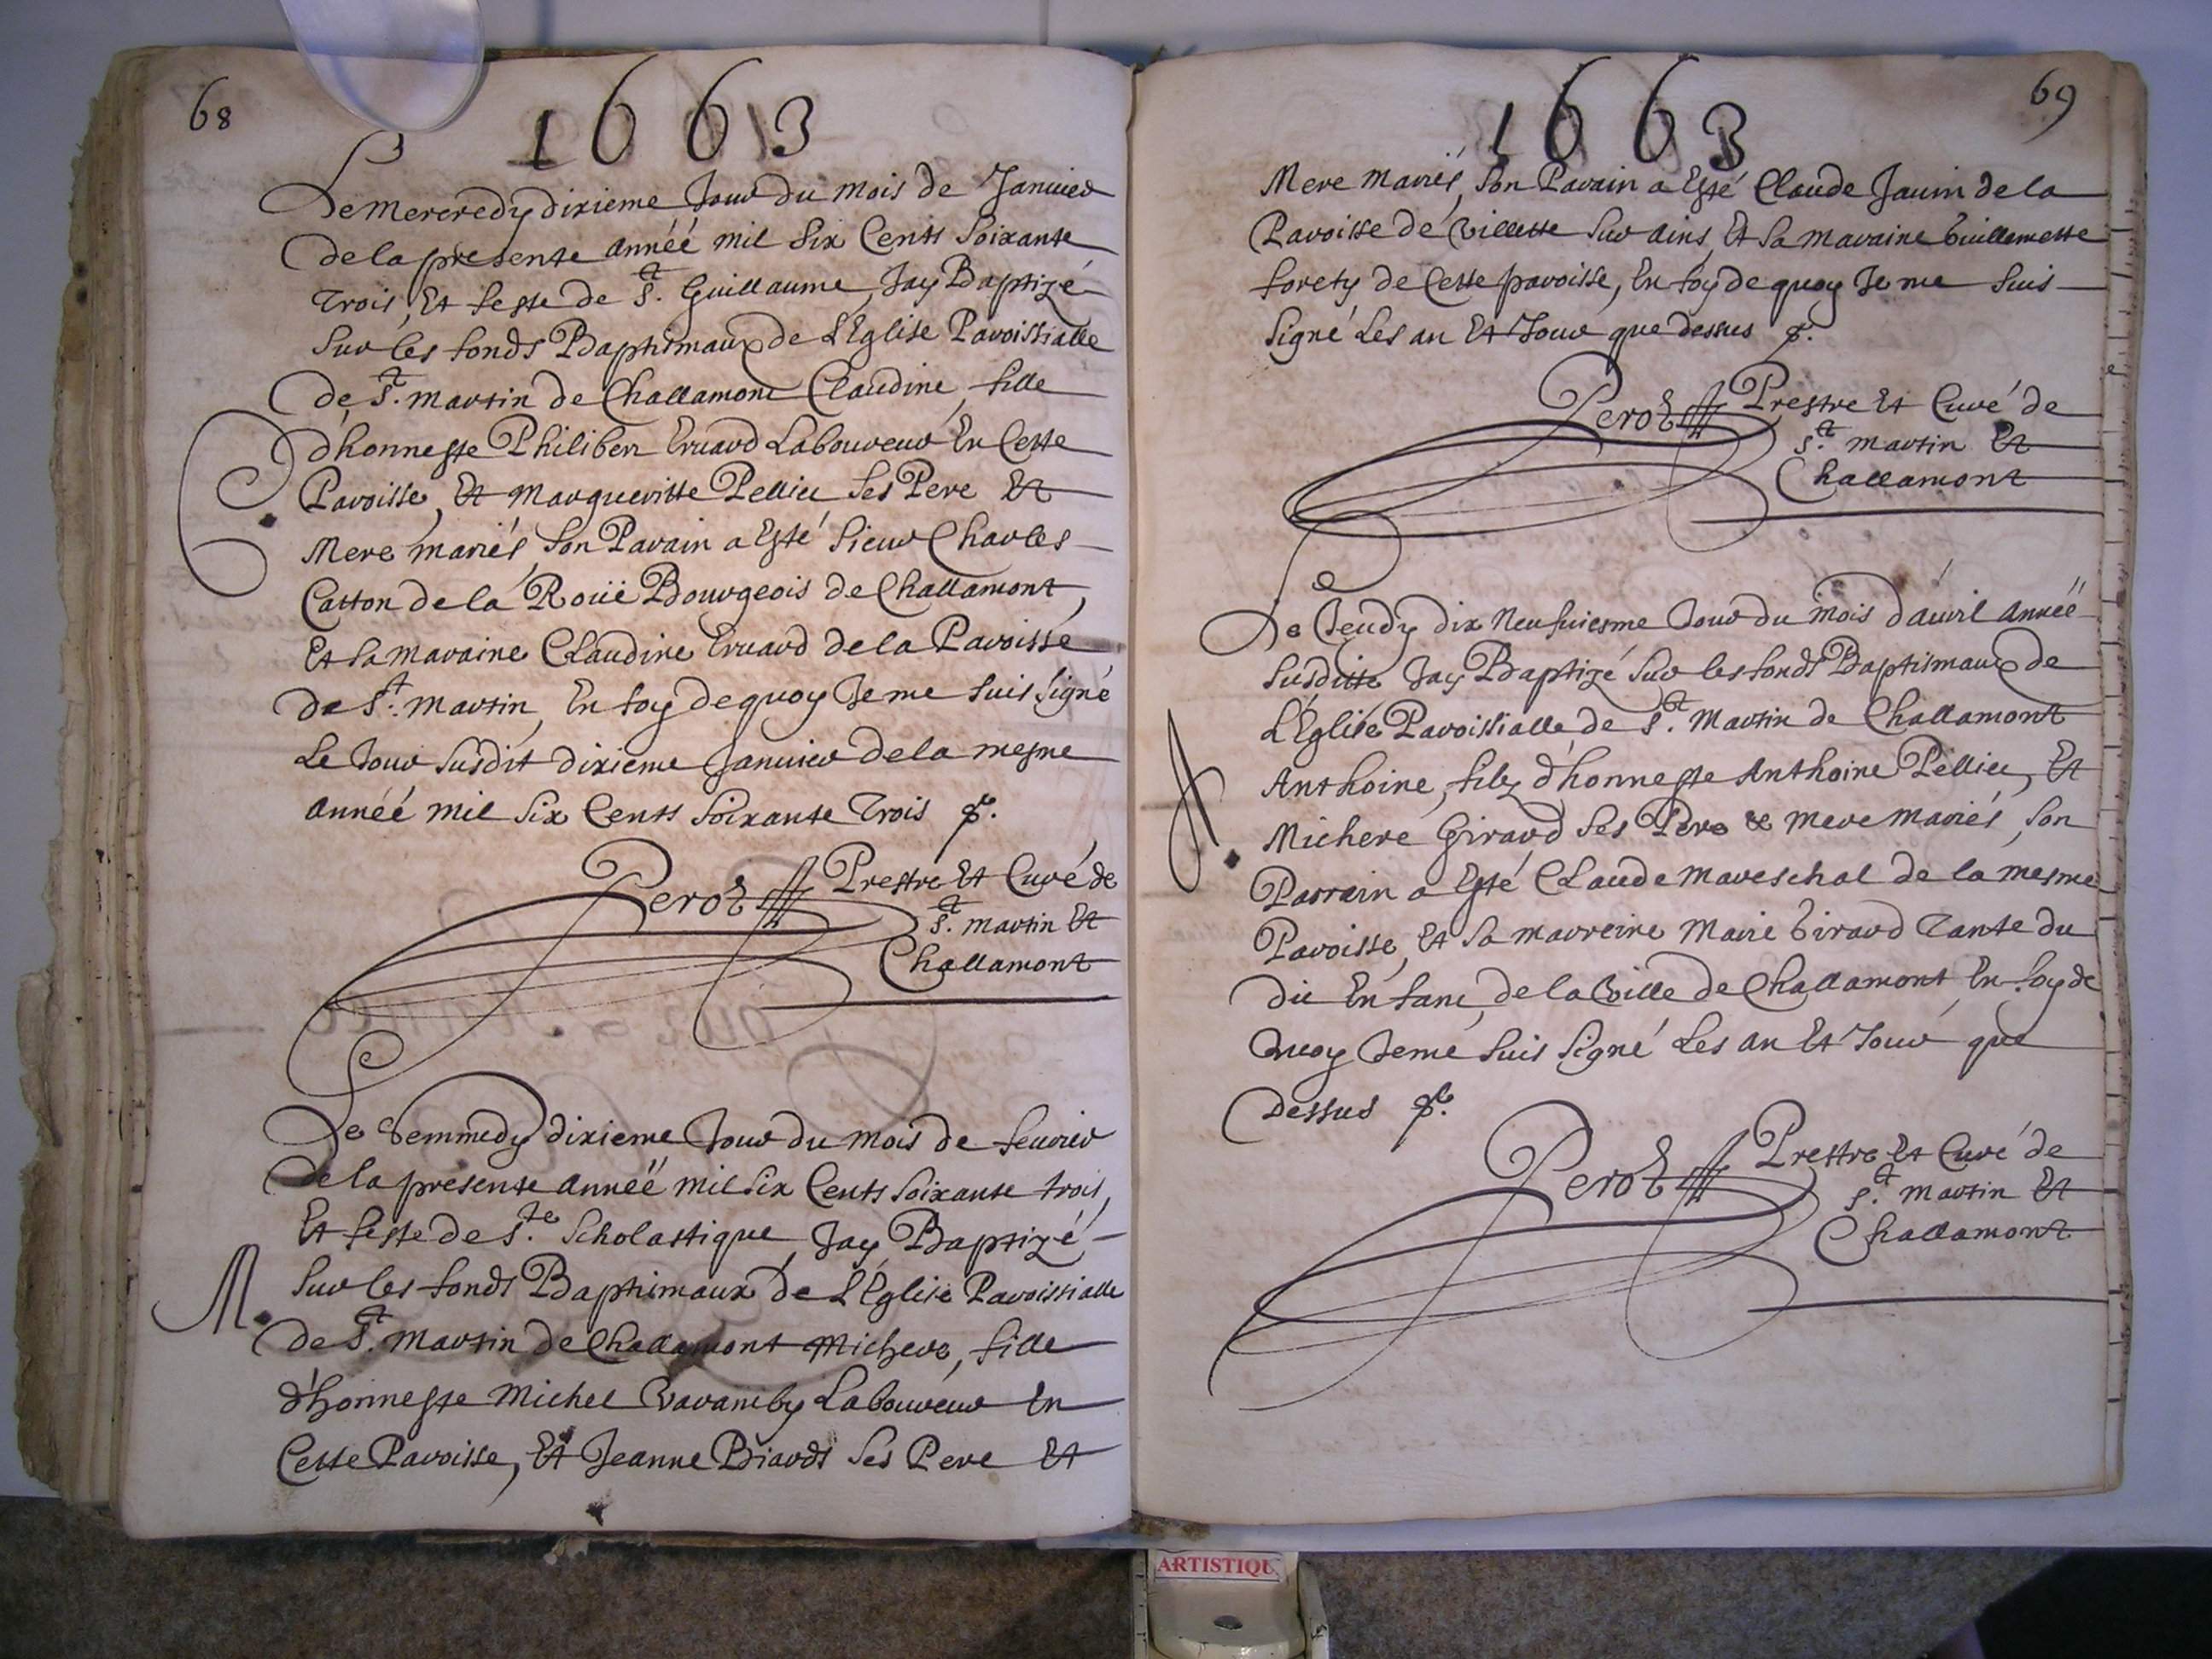 68
1663
Le mercredy dixieme Jour du mois de Januier
de la presente année mil Six Cents Soixante
Trois, Et feste de St. Guillaume, Jay Baptizé
Sur les fonds Baptismaux de L'Eglise Paroissialle
de St. martin de Challamont Claudine, fille
d'honneste Philibert Eruard Laboureur En Cette
Paroisse, Et Margueritte Pellier Ses Pere Et
Mere mariés, Son Parain a Esté Sieur Charles
Catton de la Roüe Bourgeois de Challamont,
Et Sa maraine Claudine Eruard de la Paroisse
C.
de St. martin, En foy de quoy Je me Suis Signé
Le Jour Susdit dixieme Januier de la mesme
Année mil Six Cents Soixante Trois
Perot Prestre Et Curé de
St. martin Et
Challamont
Le Semmedy dixieme Jour du mois de feurier
de la presente Année mil Six Cents Soixante trois,
Et feste de Ste. Scholastique, Jay Baptizé
Sur les fonds Baptimaux de L'Eglise Paroissialle
M.
de St. Martin de Challamont Michere, fille
d'honneste Michel Laboureur En
Cette Paroisse, Et Jeanne Biards Ses Pere Et
69
1663
Mere mariés, Son Parain a Esté Claude Jauin de la
Paroisse de Villette Sur ains, Et Sa maraine Guillemette
forety de Cette paroisse, En foy de quoy Je me Suis
Signé Les an Et Jour que dessus
Perot Prestre Et Curé de
St. martin Et
Challamont
Le Jeudy dix Neufuiesme Jour du mois d'auril Année
Susditte Jay Baptizé Sur les fonds Baptismaux de
L'Eglise Paroissialle de St. Martin de Challamont
A.
Anthoine, filz d'honneste Anthoine Pellier, Et
Michere Girard Ses Pere & mere mariés, Son
Parrain a Esté Claude Mareschal de la mesme
Paroisse, Et Sa marreine Marie Girard Tante du
dit Enfant, de la Ville de Challamont En foy de
quoy Je me Suis Signé Les an Et Jour que
Dessus
Perot Prestre Et Curé de
St. martin Et
Challamont
ARTISTIQU